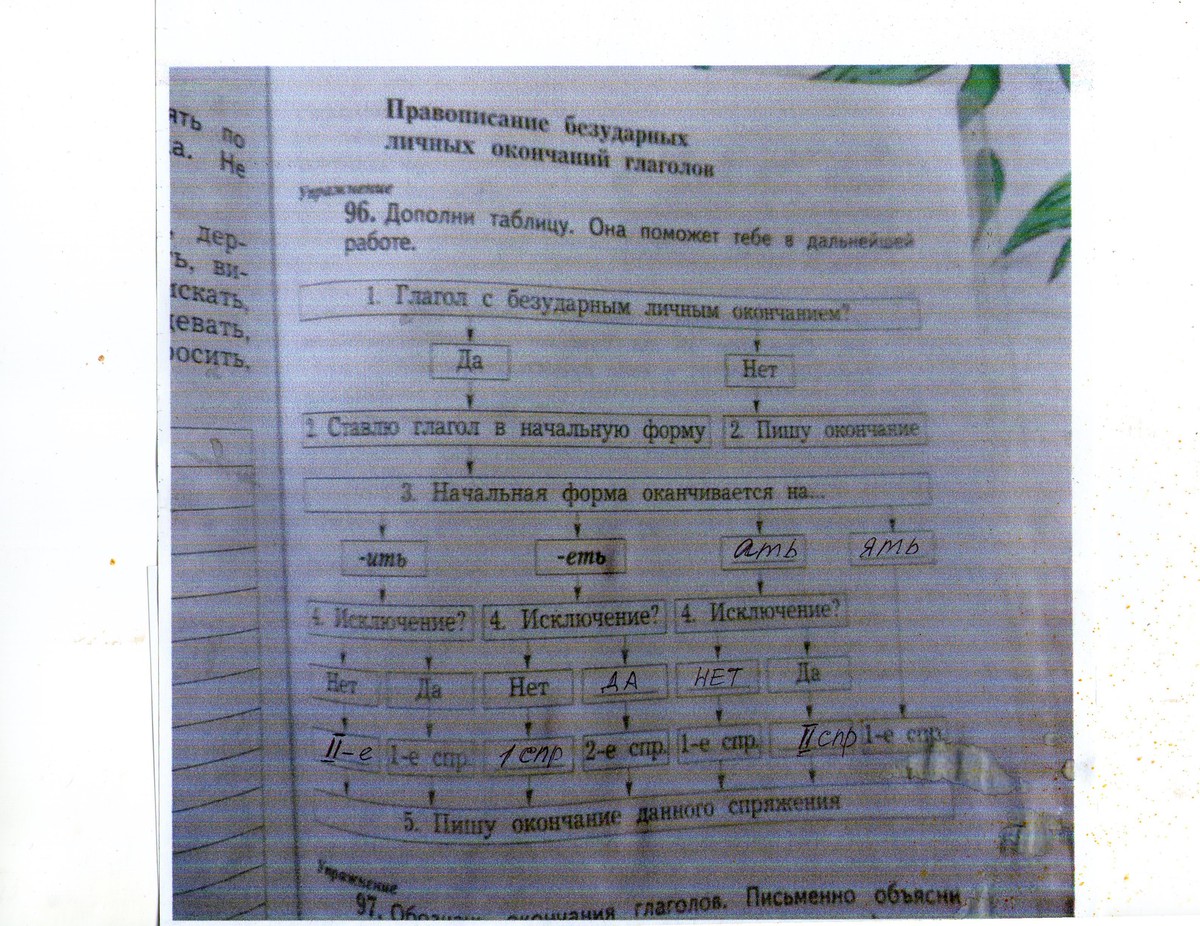 Правописание безударных
личных окончаний глаголов
ять по
а. Не
Упражнение
96. Дополни таблицу. Она поможет тебе в дальнейшей
работе.
дер-
ть, ви-
искать,
девать,
росить,
1. Глагол с безударным личным окончанием?
Да
Нет
2. Ставлю глагол в начальную форму
2. Пишу окончание
3. Начальная форма оканчивается на...
-ить
-еть
ать
ять
4. Исключение?
4. Исключение?
4. Исключение?
Нет
Да
Нет
ДА
НЕТ
Да
II-е
1-е спр.
1 спр
2-е спр.
1-е спр.
II спр
1-е спр.
5. Пишу окончание данного спряжения
Упражнение
97. окончания глаголов. Письменно объясни